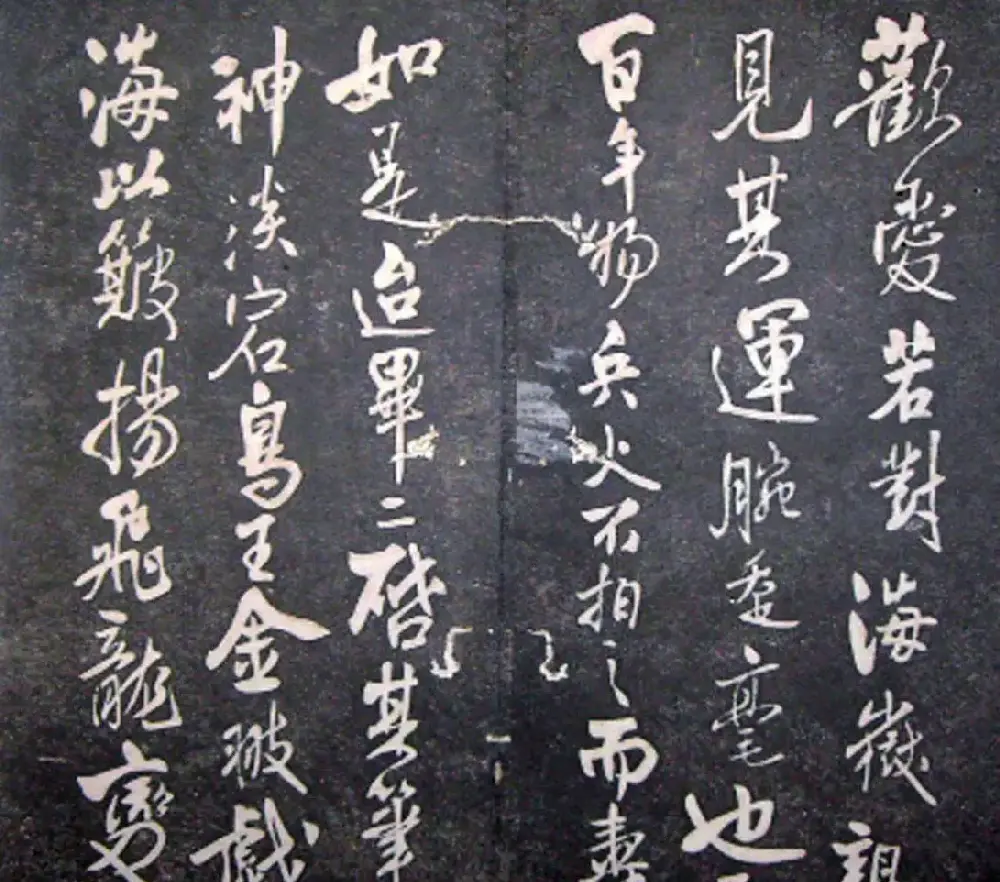 歡愛若對海嶽親
見其運腕垂毫也
百年物兵火不拍之而壽
如是迨畢二啓其筆
神淡宕鳥王金翅戲
海以簸揚飛龍